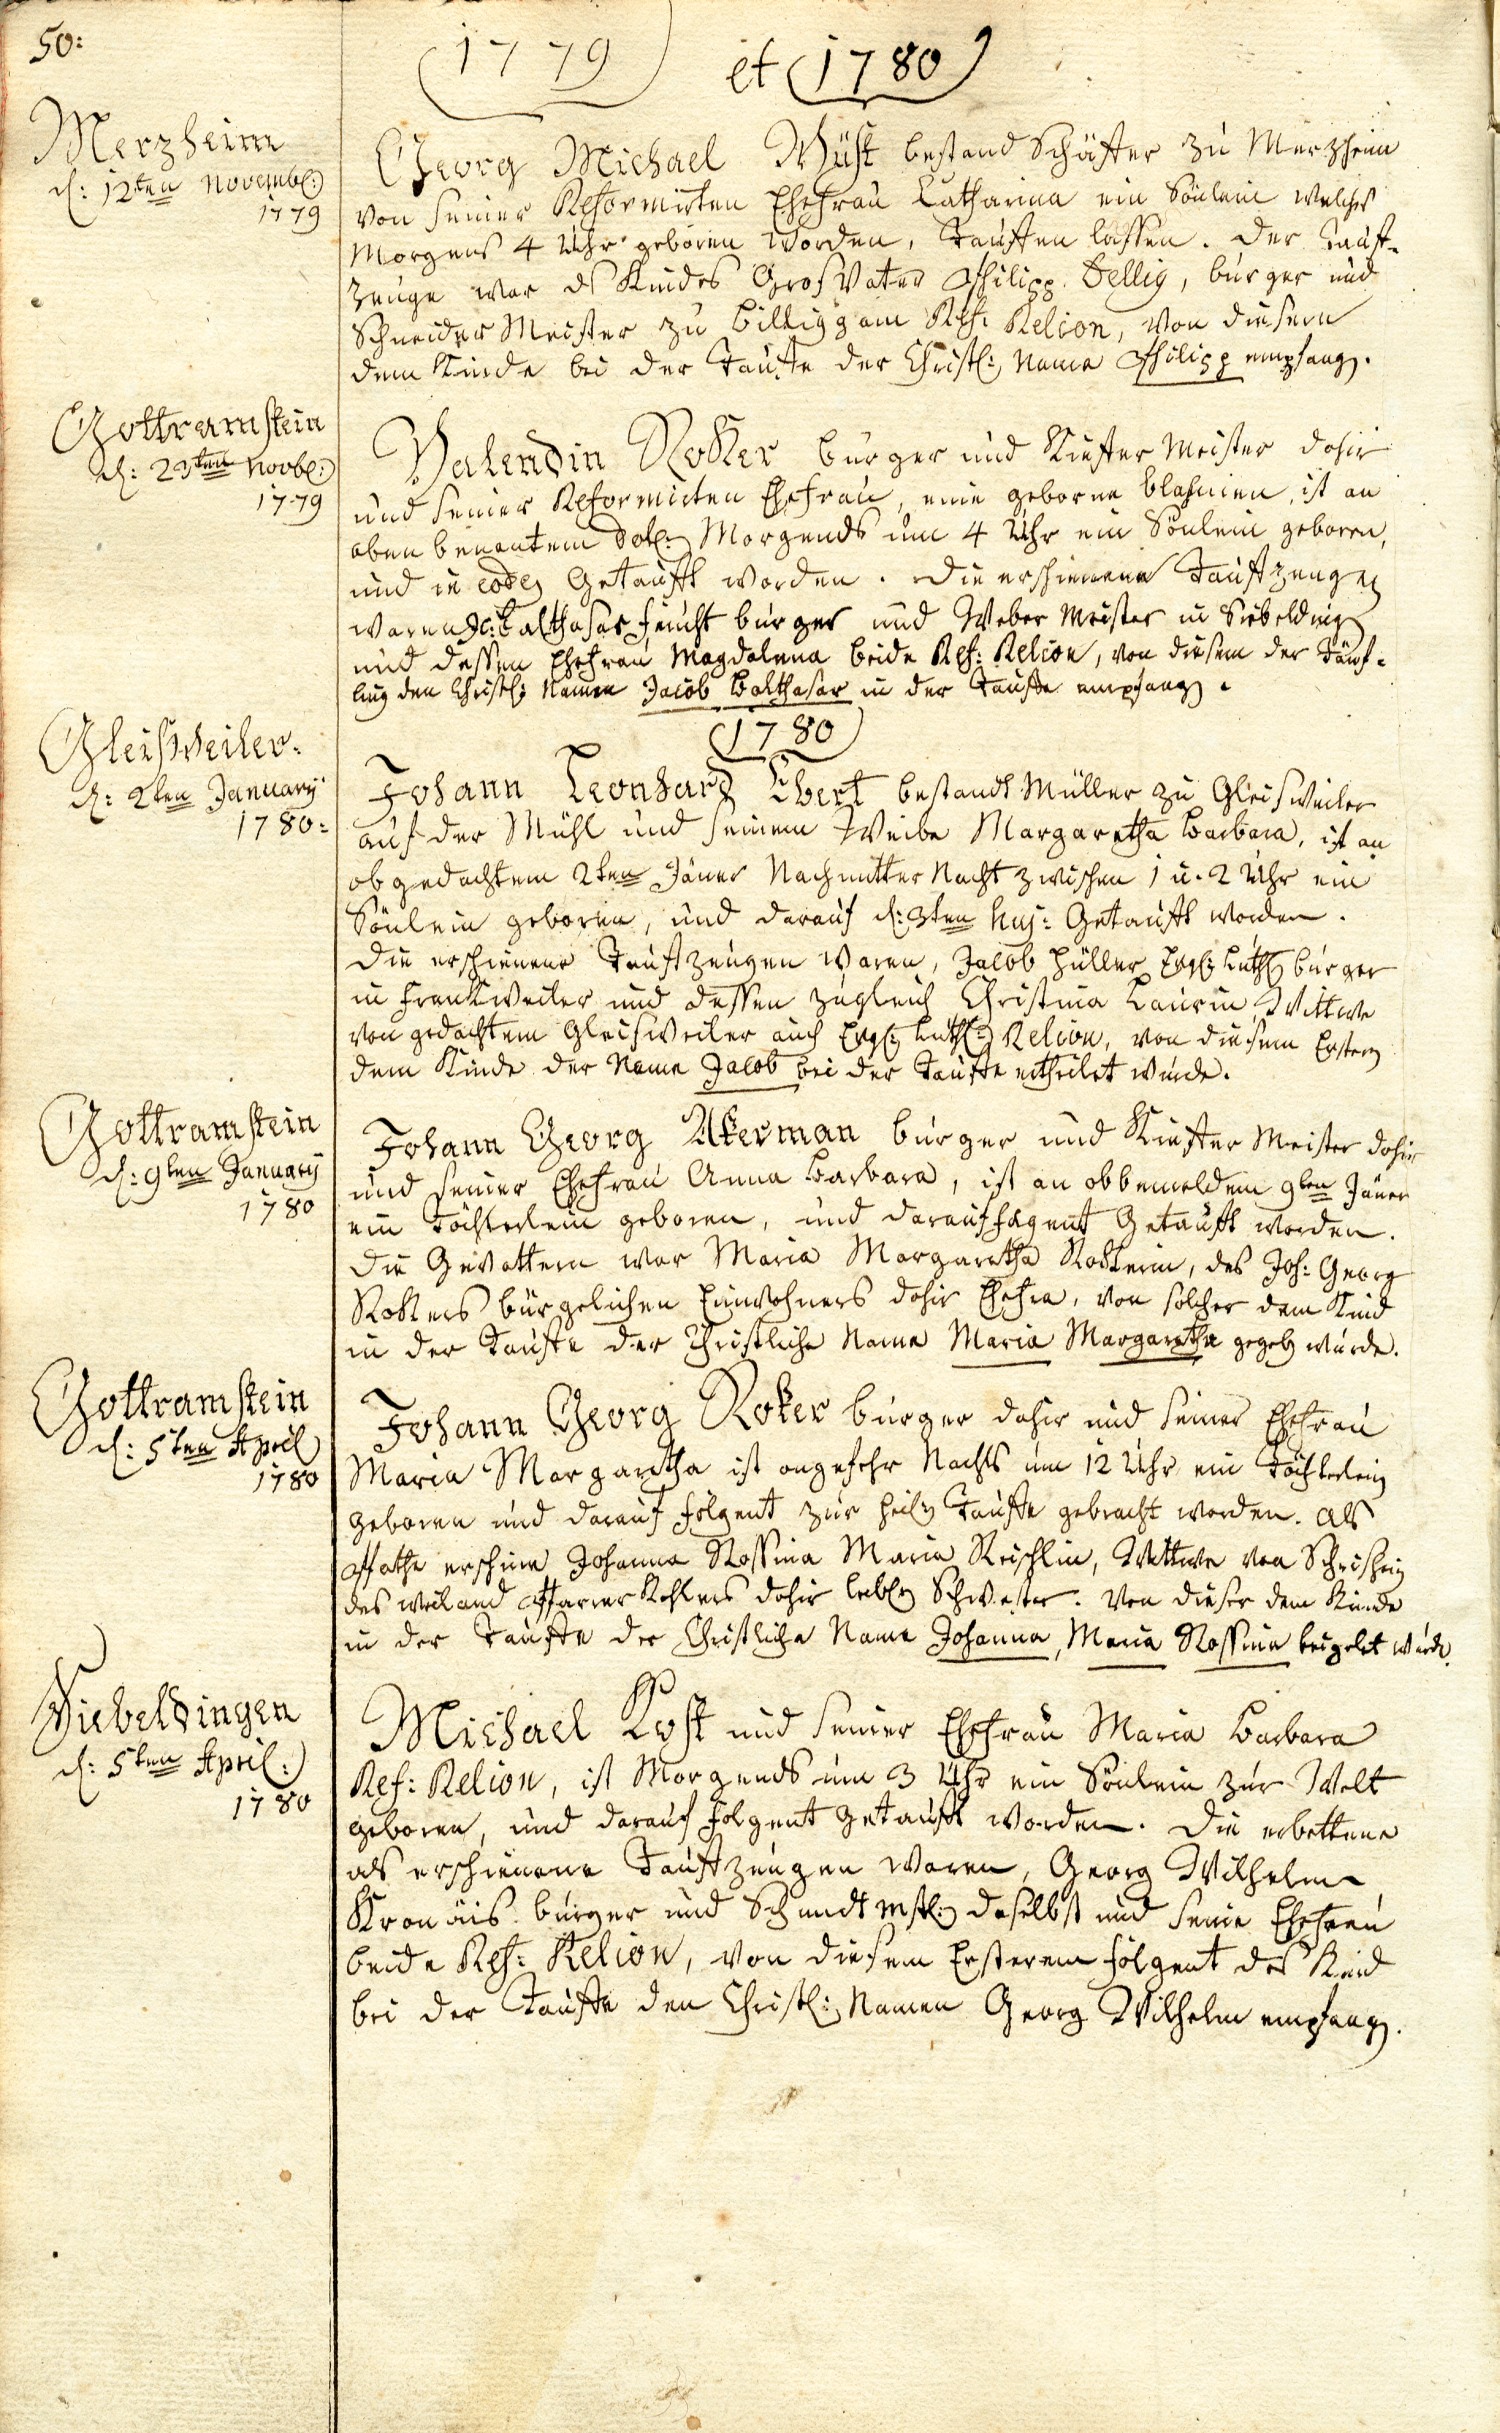 50:
(1779) et (1780)
Merzheim
d: 12ten Novembl:
1779
Georg Michael Wüst bestand Schäffer zu Merzheim
von seiner Reformirten Ehefrau Catharina ein Sönlein welches
Morgens 4 Uhr geboren worden, Tauffen lassen. Der Tauf-
zeuge war ds Kindes GrosVater Philipp Bellig, burger und
Schneider Meister zu Billigg am Ref: Relion, von diesem
dem Kinde bei der Tauffe der Christl: Name Philipp empfang.
Gottramstein
d: 23ten Novbl:
1779
Valendin Roker burger und Kieffer Meister dahir
und seiner Reformirten Ehefrau, eine geborne ist an
oben benantem dat: Morgends um 4 Uhr ein Sönlein geboren,
und in eod: Getaufft worden. Die erschienene Taufzeugen
waren Jc: Balthasar Feucht burger und Weber Meister in Siebelding
und dessen Ehefrau Magdalena beide Ref: Relion, von diesem der Täuf-
ling den Christl: Namen Jacob Balthasar in der Tauffe empfang.
(1780)
Gleisweiler.
d: 2ten January
1780:
Johann Leonhard Ebert bestandt Müller zu Gleisweiler
auf der Mühl und seinem Weibe Margaretha Barbara, ist an
obgedachtem 2ten Jäner Nachmitter Nacht zwischen 1 u. 2 Uhr ein
Sönlein geboren, und darauf d: 3ten huj: Getaufft worden.
Die erschienene Taufzeugen waren, Jacob Hüller Evgl: Luth: burger
in Frankweiler und dessen zugleich Christina Laurin, Wittwe
von gedachtem Gleisweiler auch Evgl: Luth: Relion, von diesem Erstern
dem Kinde der Name Jacob bei der Tauffe ertheilet wurde.
Gottramstein
d: 9ten January
1780
Johann Georg Akerman burger und Kieffer Meister dahir
und seiner Ehefrau Anna Barbara, ist an obbemeldem 9ten Jäner
ein Töchterlein geboren, und darauf folgent Getaufft worden.
Die Gevatterin war Maria Margaretha Rokerin, des Joh: Georg
Rokers bürgelichen Einwohners dahir Ehefra, von solcher dem Kind
in der Tauffe der Christliche Name Maria Margaretha gegeb wurde.
Gottramstein
d: 5ten April
1780
Johann Georg Roker burger dahir und seiner Ehefrau
Maria Margaretha ist ongefehr Nachts um 12 Uhr ein Töchterlein
geboren und darauf folgent zur heil: Tauffe gebracht worden. Als
Pathe erschine Johanna Rossina Maria Reischlin, Wittwe von
des weiland Pfarrer Kohlers dahir leibl: Schwester. Von dieser dem Kinde
in der Tauffe der Christliche Name Johanna, Maria Rossina beigelet wurde.
Siebeldingen
d: 5ten April:
1780
Michael Kost und seiner Ehefrau Maria Barbara
Ref: Relion, ist Morgends um 3 Uhr ein Sönlein zur Welt
geboren, und darauf folgent getaufft worden. Die erbettene
als erschienene Taufzeugen waren, Georg Wilhelm
burger und Schmidt mstl: daselbst und seine Ehefrau
beide Ref: Relion, von diesem Ersterem folgent das Kind
bei der Tauffe den Christl: Namen Georg Wilhelm empfang.